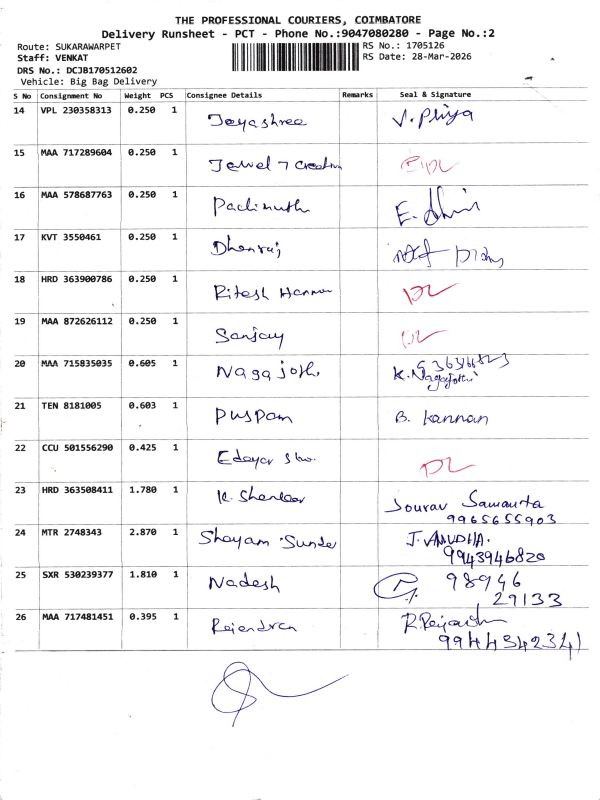 THE PROFESSIONAL COURIERS, COIMBATORE
Delivery Runsheet - PCT - Phone No.:9047080280 - Page No.:2
Route: SUKARAWARPET RS No.: 1705126
Staff: VENKAT RS Date: 28-Mar-2026
DRS No.: DCJB170512602
Vehicle: Big Bag Delivery
S No Consignment No Weight PCS Consignee Details Remarks Seal & Signature
14 VPL 230358313 0.250 1 Jayashree V. Priya
15 MAA 717289604 0.250 1 Jewel 7 Creation
16 MAA 578687763 0.250 1 Padimuth
17 KVT 3550461 0.250 1 Dhenraj
18 HRD 363900786 0.250 1 Ritesh DL
19 MAA 872626112 0.250 1 Sanjay DL
20 MAA 715835035 0.605 1 Nagajothi K. Nagajothi
21 TEN 8181005 0.603 1 Puspam B. Kannan
22 CCU 501556290 0.425 1 Edayar DL
23 HRD 363508411 1.780 1 K. Shankar Sourav Samanta
9965655903
24 MTR 2748343 2.870 1 Shayam Sunder J. ANUDHA.
9943946820
25 SXR 530239377 1.810 1 Nadesh 98946
29133
26 MAA 717481451 0.395 1 Rejendran
9944342341